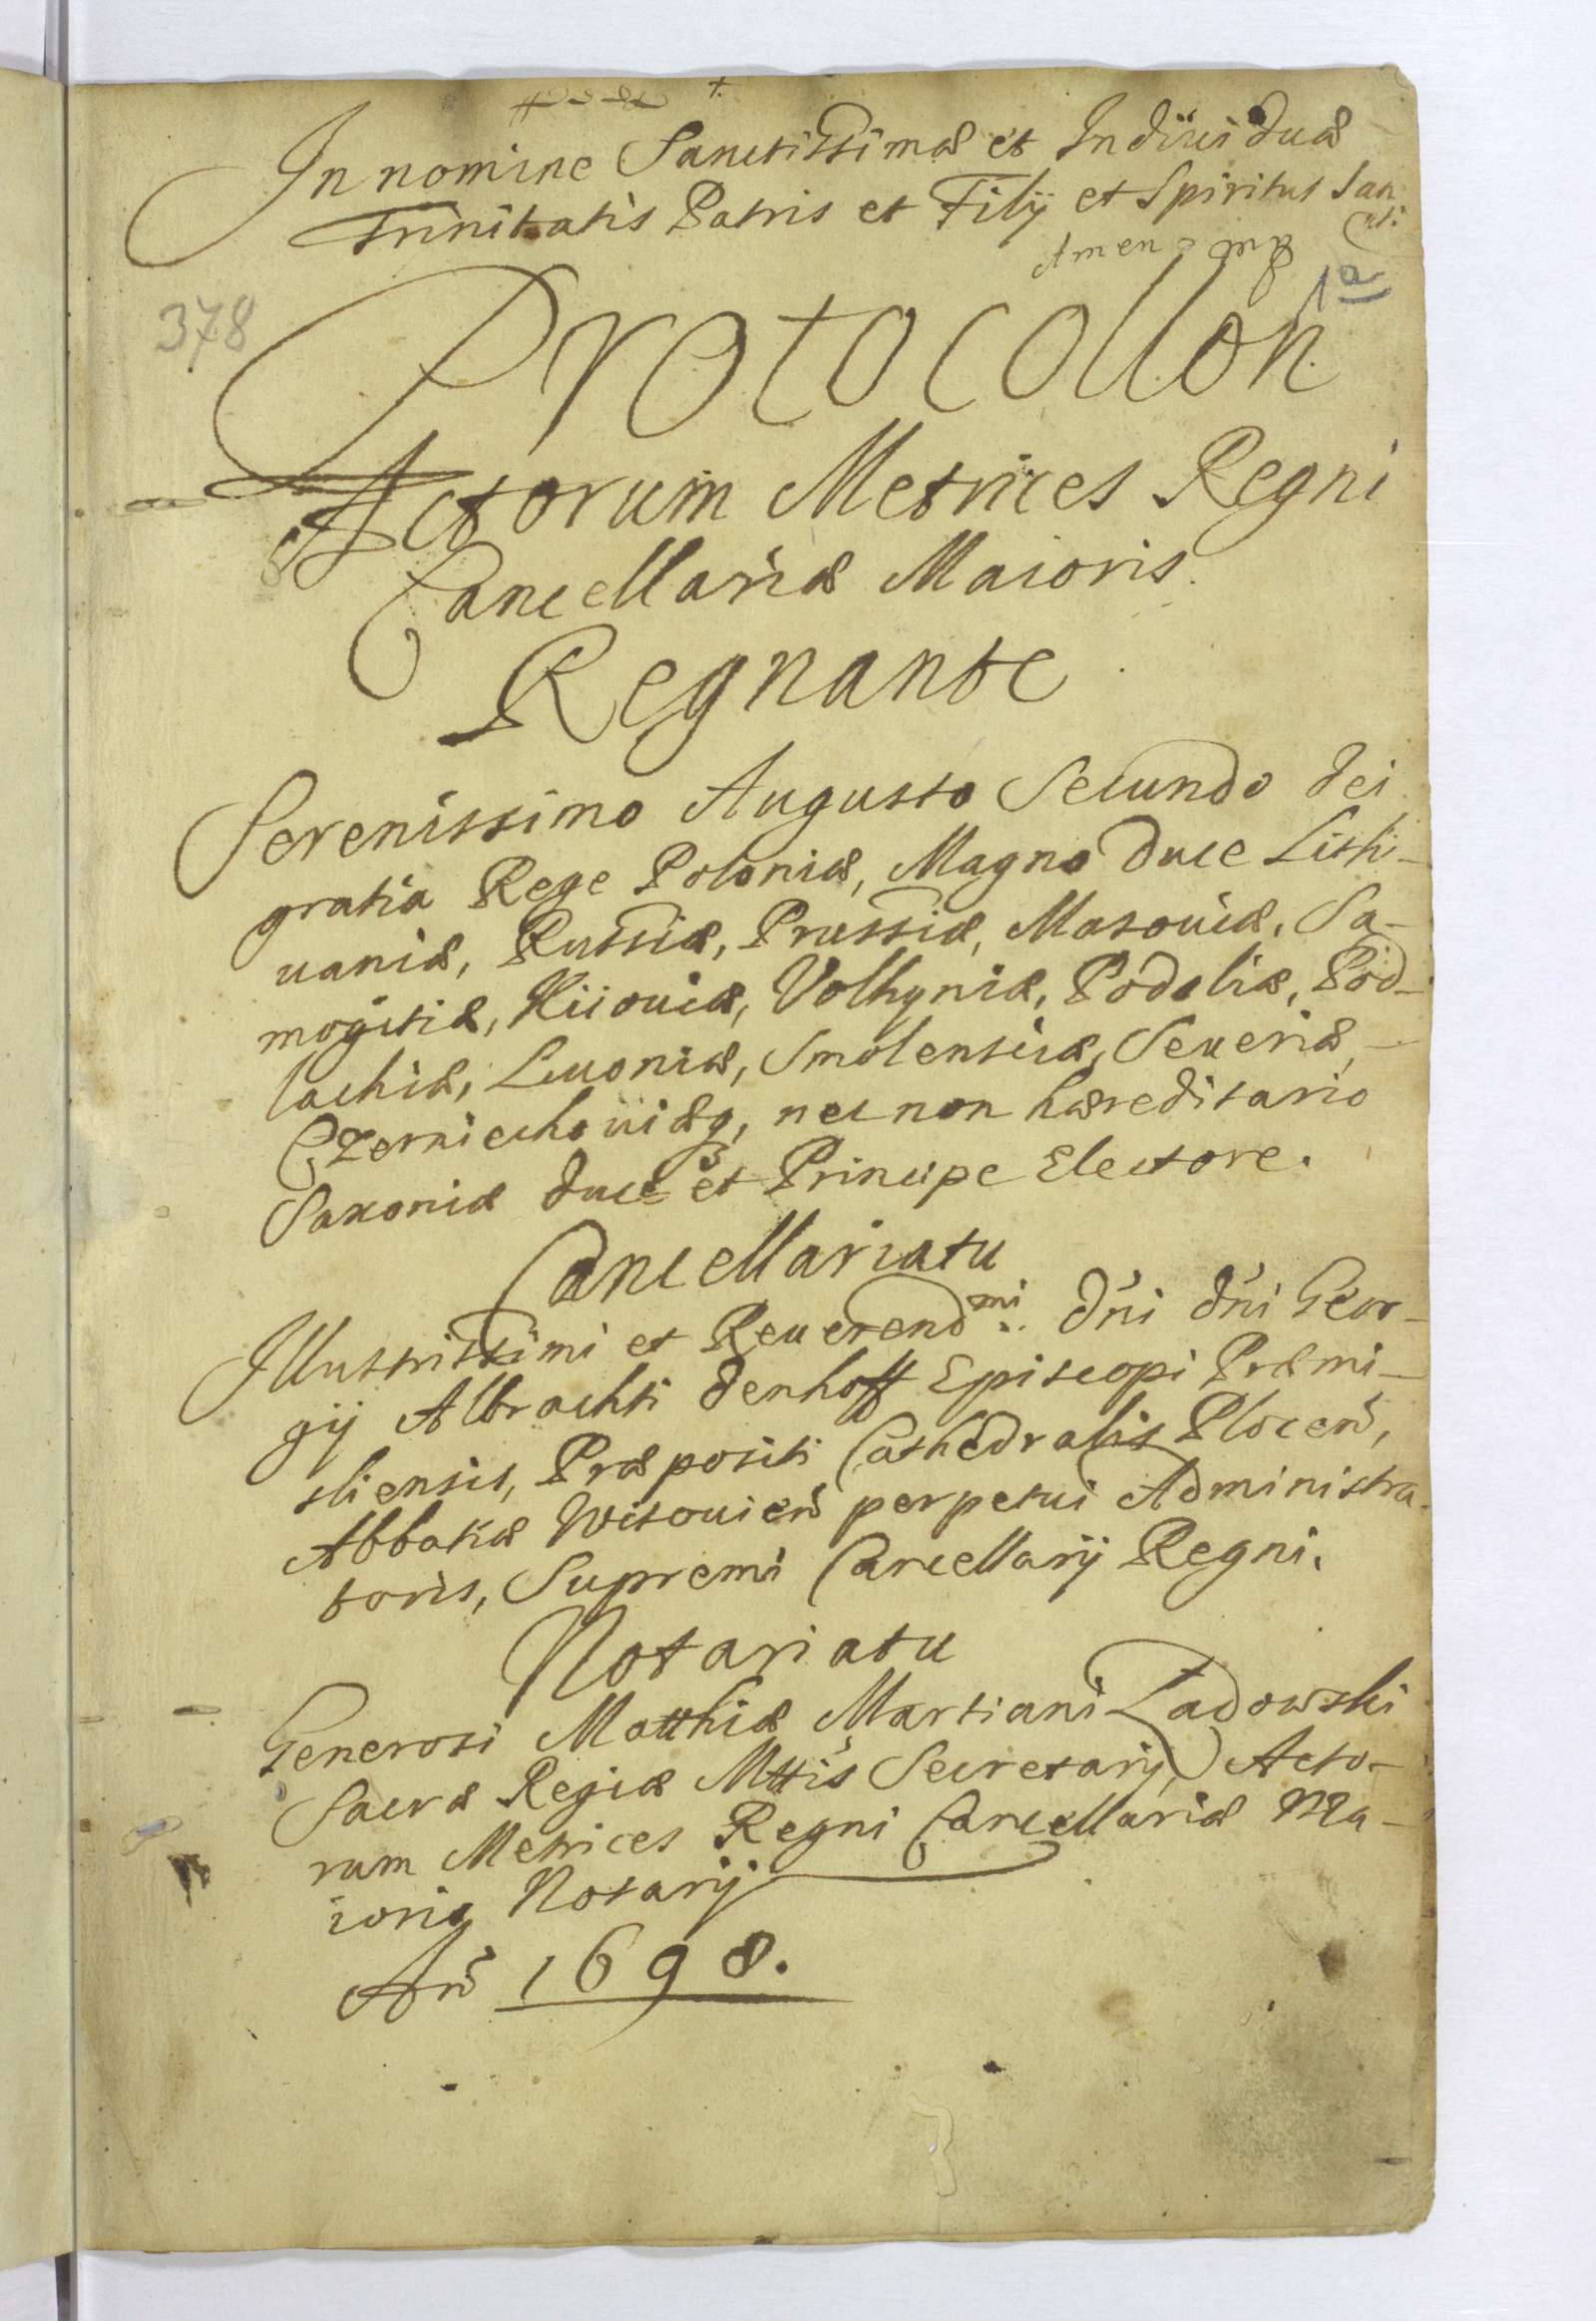 In nomine Sanctissimæ et Indiuiduæ
Trinitatis Patris et Filij et Spiritus San
cti.
Amen
1a
378
Protocollon
Actorum Metrices Regni
Cancellariæ Maioris.
Regnante
Serenissimo Augusto Secundo Dei
gratia Rege Poloniæ, Magno Duce Lith-
uaniæ, Russiæ, Prussiæ, Masouiæ, Sa-
mogitiæ, Kiiouiæ, Volhyniæ, Podoliæ, Pod-
lachiæ, Liuoniæ, Smolensciæ, Seueriæ,
Czerniechouiæq, nec non hæreditario
Saxoniæ Duce et Principe Electore.
Cancellariatu
Illustrissimi et Reuerendmi. Dni Dni Geor-
gij Albrachti Denhoff Episcopi Præmi-
sliensis, Præpositi Cathedralis Plocen,
Abbatiæ Witouien perpetui Administra-
toris, Supremi Cancellarij Regni.
Notariatu
Generosi Matthiæ Martiani Ladowski
Sacræ Regiæ Mttis Secretarij, Acto-
rum Metrices Regni Cancellariæ Ma-
ioris Notarij
Ano 1698.